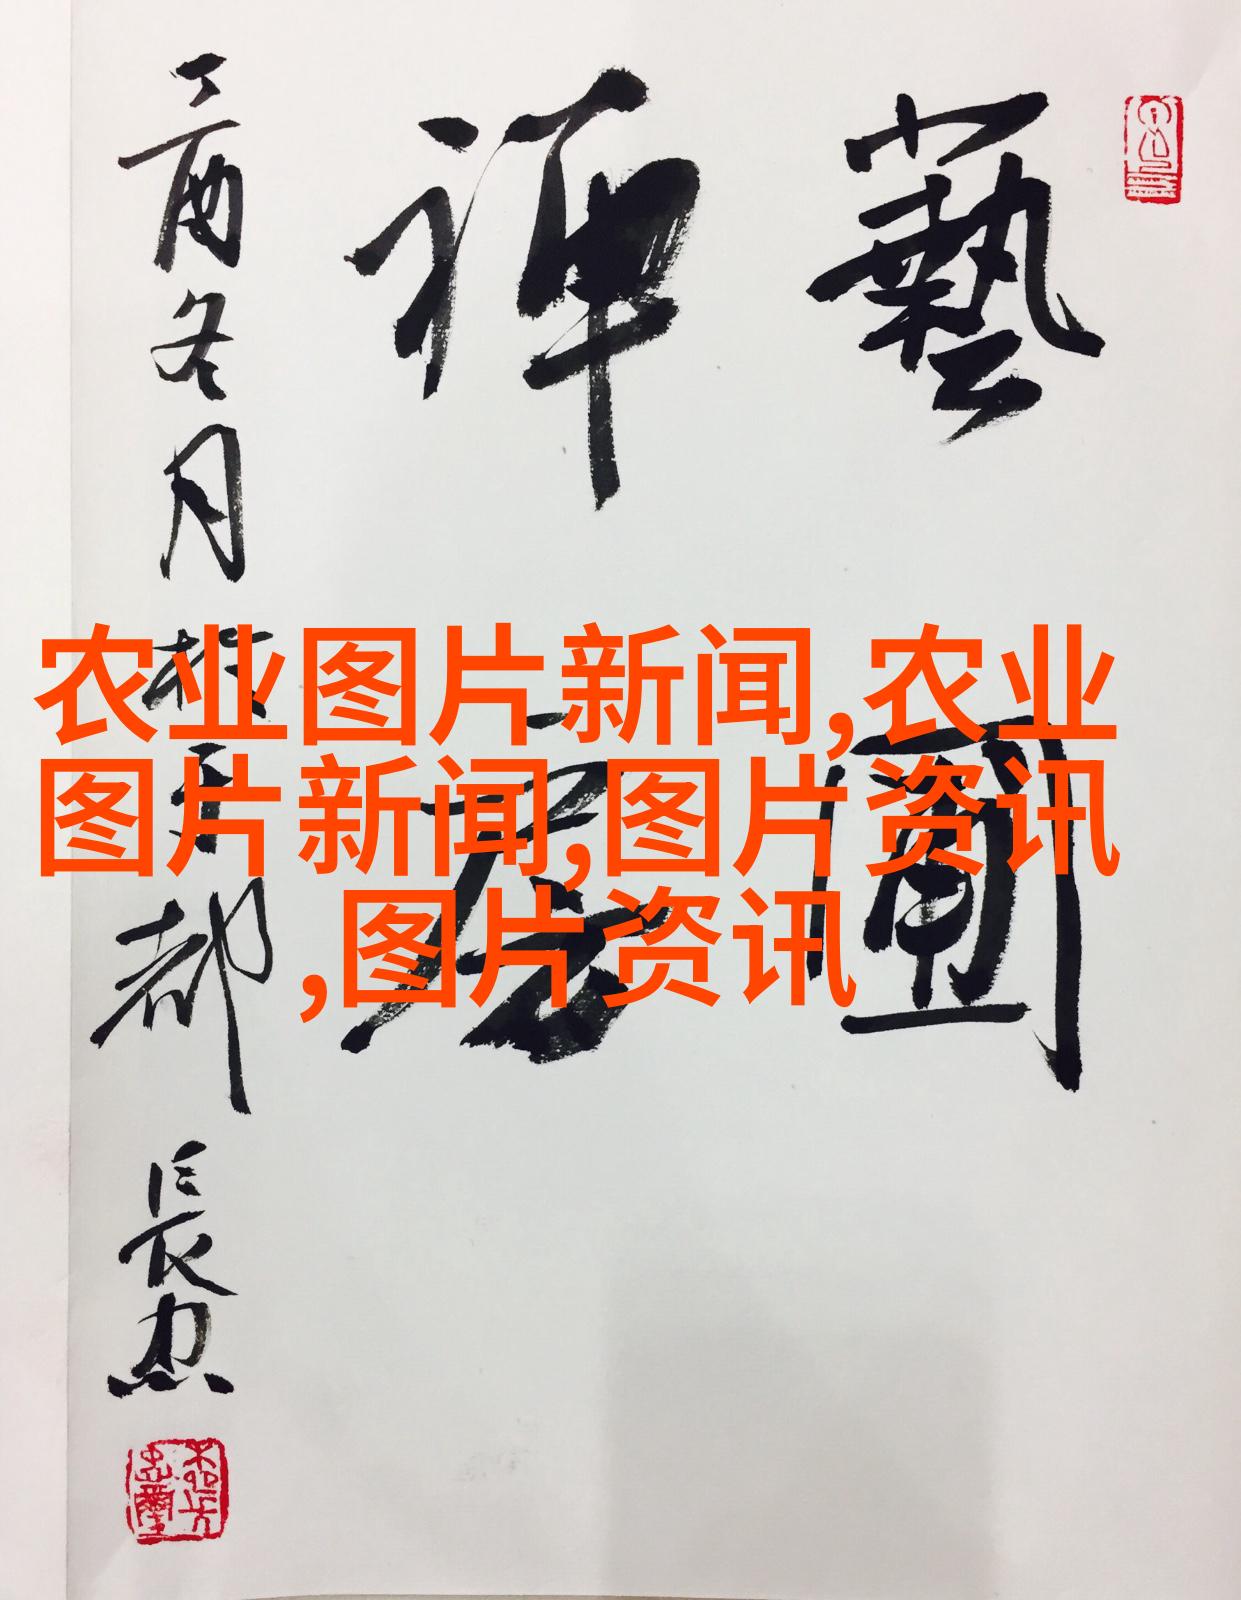 农业图片新闻,农业
图片新闻,图片资讯
,图片资讯
藝
禪
丁酉冬月 都 長忠